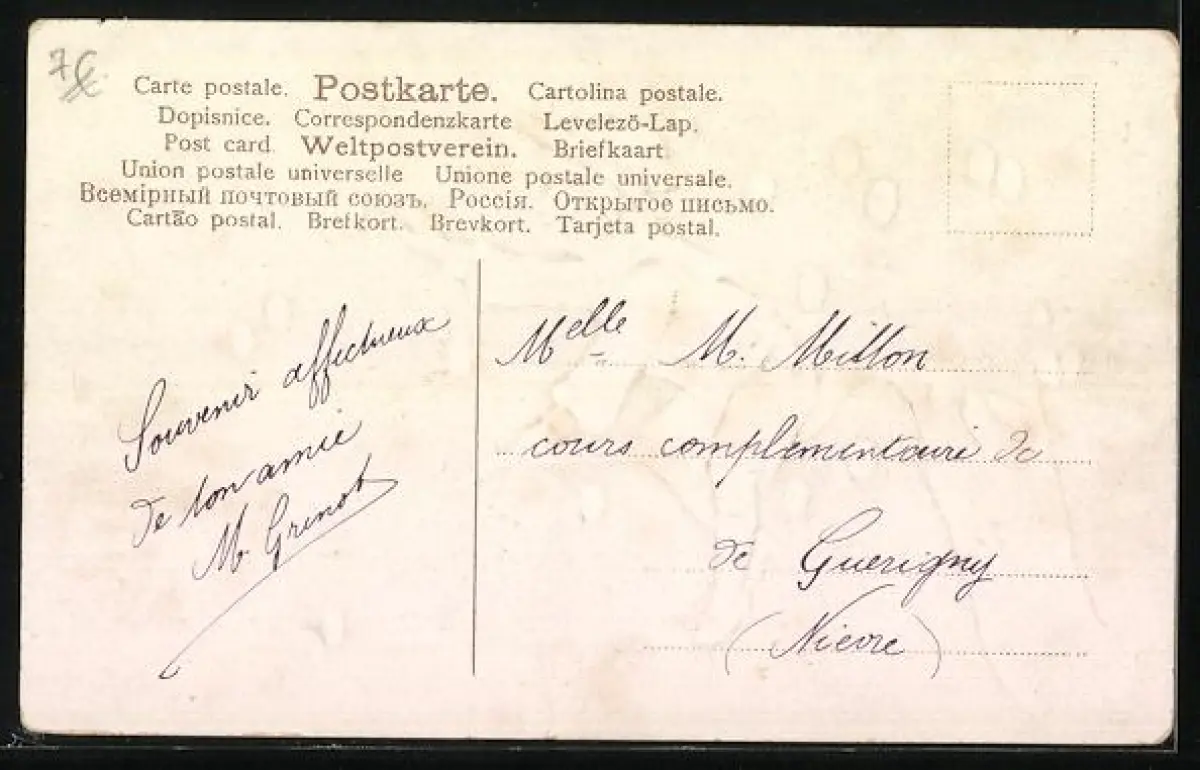 Carte postale. Postkarte. Cartolina postale.
Dopisnice. Correspondenzkarte Levelező-Lap.
Post card. Weltpostverein. Briefkaart.
Union postale universelle Unione postale universale.
Всемірный почтовый союзъ. Россія. Открытое письмо.
Cartão postal. Brefkort. Brevkort. Tarjeta postal.
Souvenir affectueux
de ton amie
M. Grinot
Melle M. Millon
cours complementaire de
de Guerigny
(Nievre)